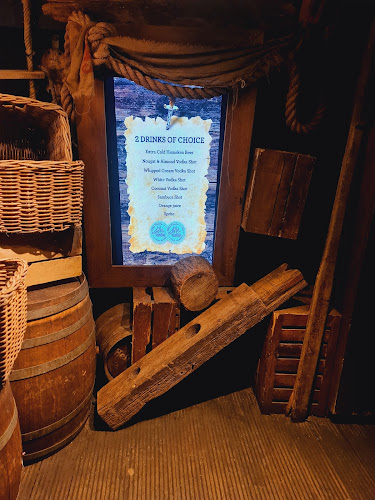 2 DRINKS OF CHOICE
Extra Cold Heineken Beer
Nougat & Almond Vodka Shot
Whipped Cream Vodka Shot
White Vodka Shot
Coconut Vodka Shot
Sambuca Shot
Orange juice
Sprite